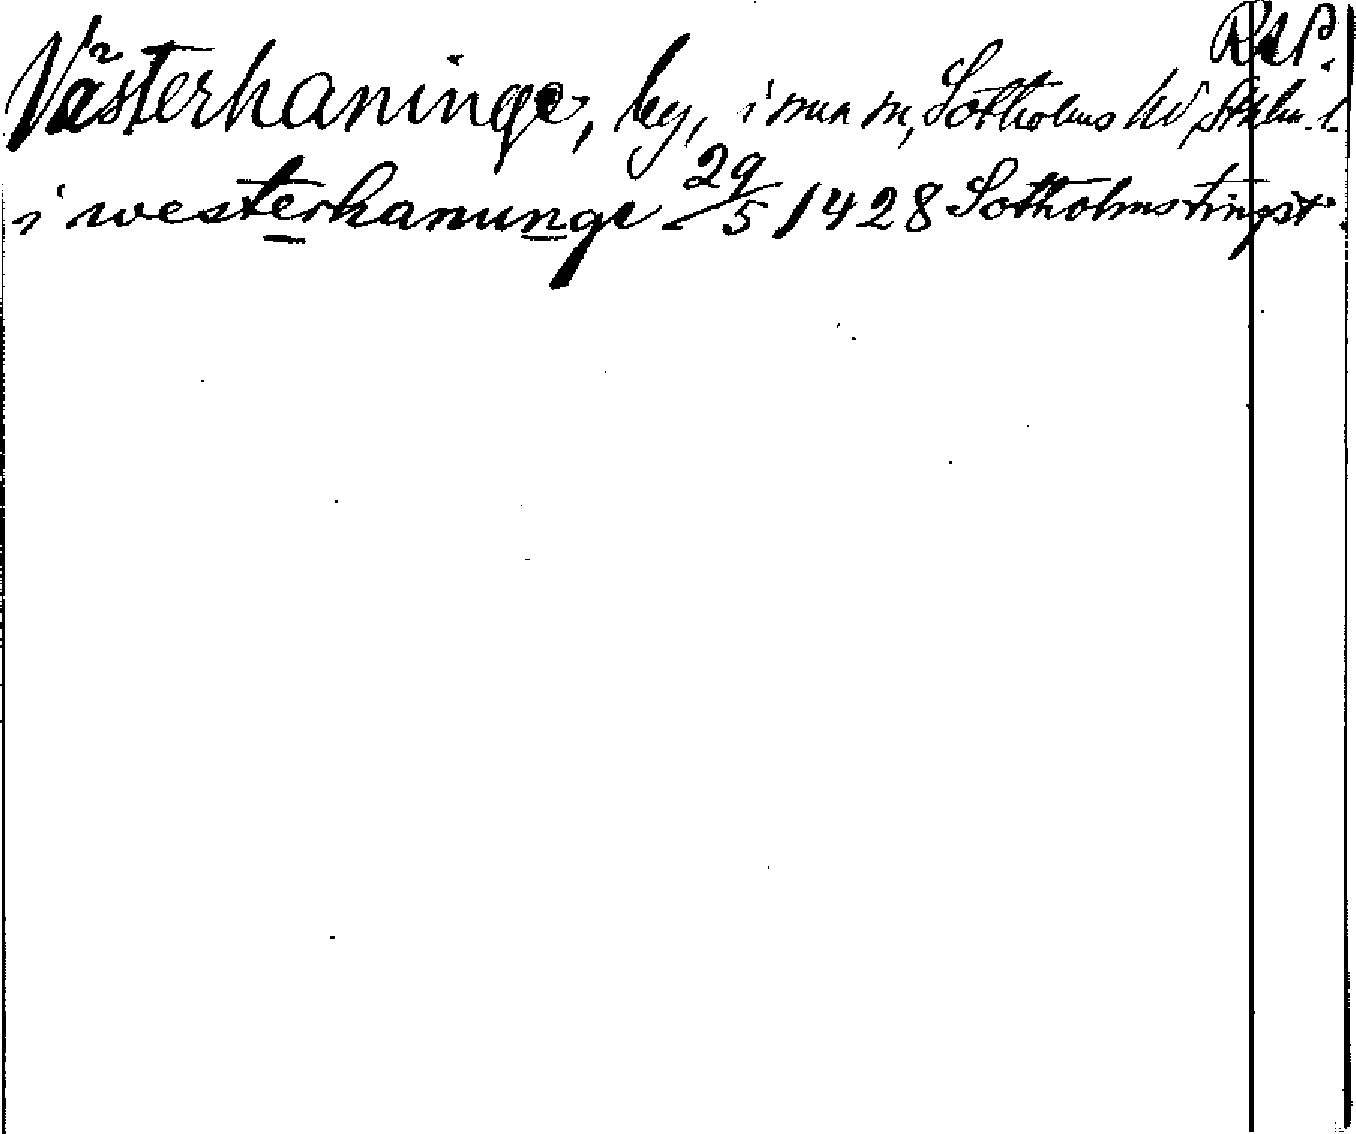 RAP.
Västerhaninge, by, i snm m, Sotholms hd Sthlm. l.
i westerhanunge 29/5 1428 Sotholms tingst.